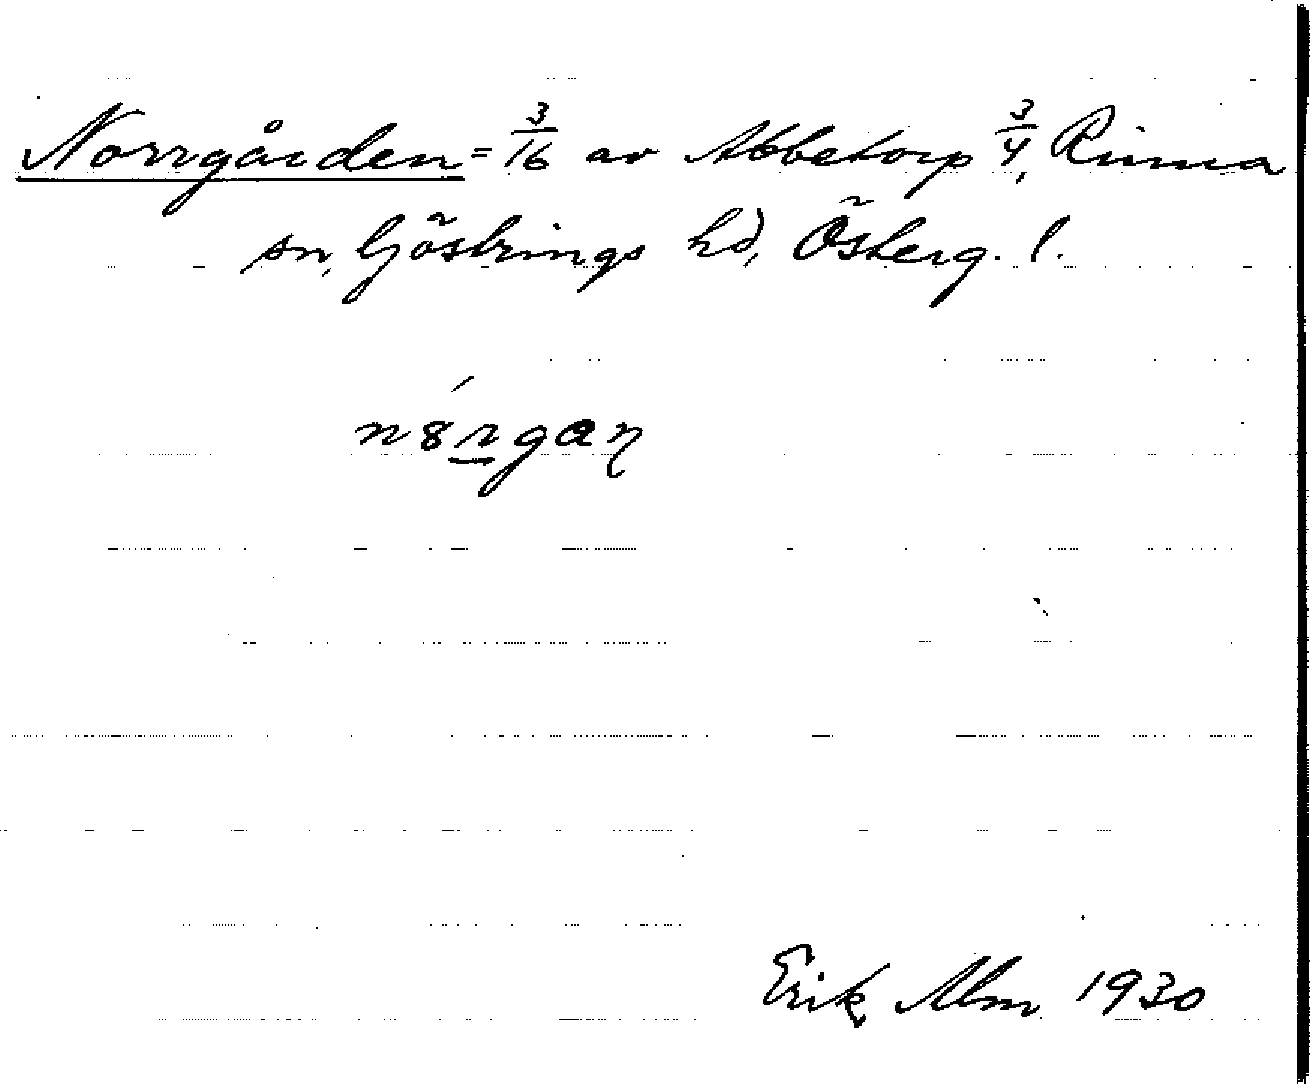 Norrgården = 3/16 av Abbetorp 3/4, Rinna
sn, Göstrings hd, Österg. l.
n8rgaɳ
Erik Alm 1930